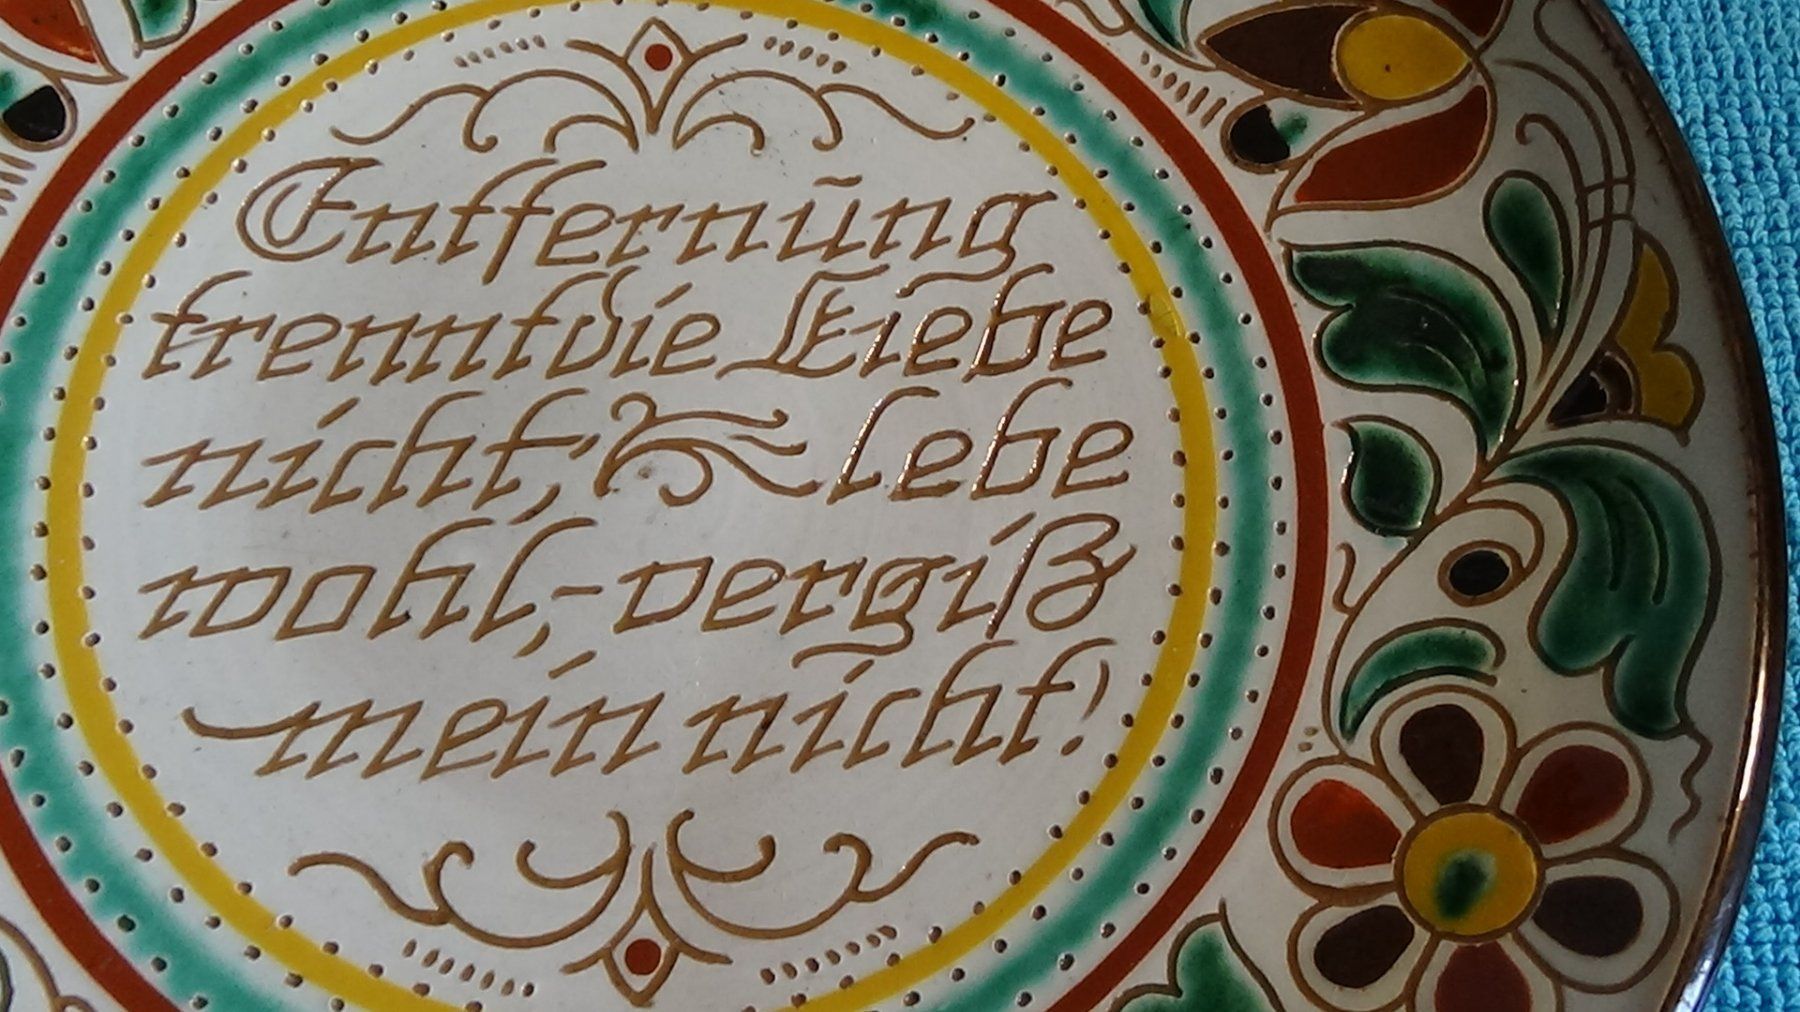 Entfernung
trennt die Liebe
nicht, lebe
wohl,- vergiß
mein nicht!